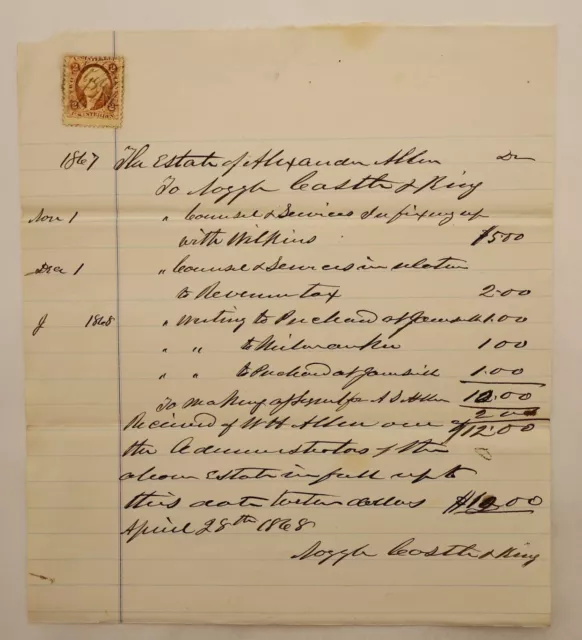 1867 The Estate of Alexander Allen Dr
To Noggle Castle & King
Nov 1 " Counsel & Services In fixing up
with Wilkins $5 00
Dec 1 " Counsel & Services in relation
to Revenue tax 2.00
J 1868 " Writing to Prichard at Janesville 1.00
" " to Milwaukee 1 00
" " to Prichard at Janesvill 1.00
10.00
To making of A S Allen 2 00
Received of W H Allen one of $12.00
the Administrators of the
above Estate in full up to
this date twelve dollars $12.00
April 28th 1868
Noggle Castle & King